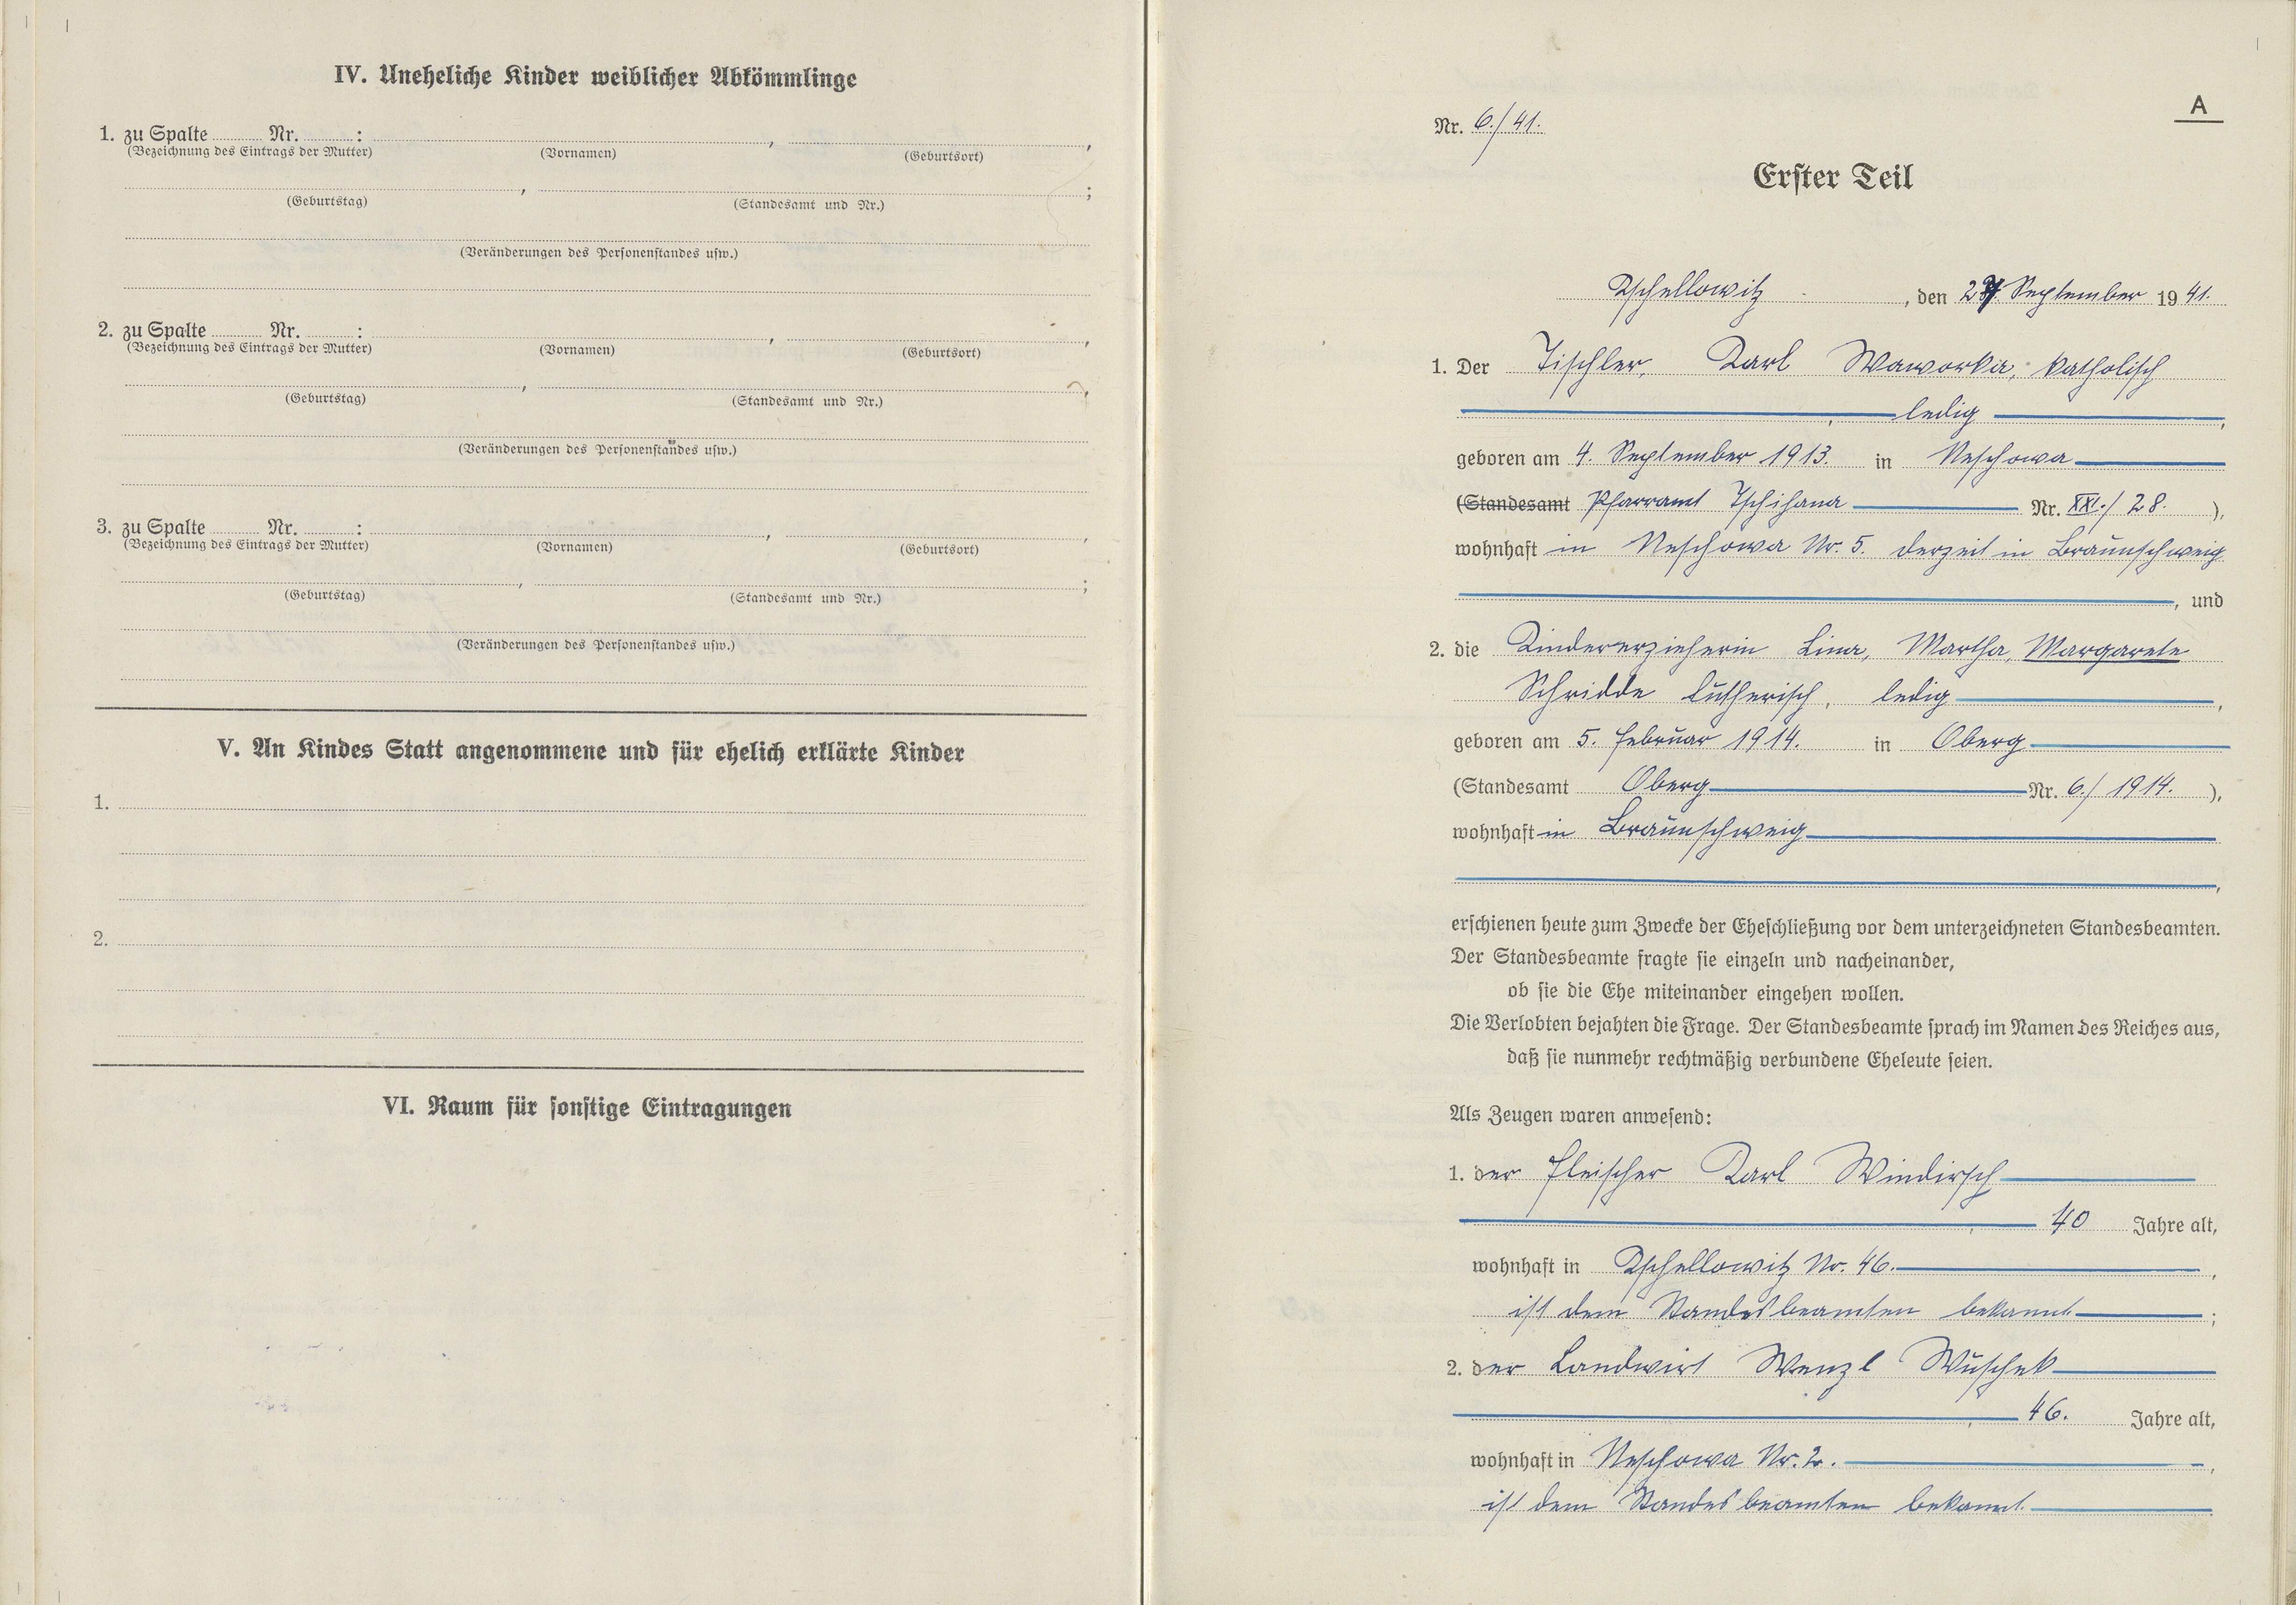 IV. Uneheliche Kinder weiblicher Abkömmlinge
1. zu Spalte Nr. : , ,
(Bezeichnung des Eintrags der Mutter) (Vornamen) (Geburtsort)
, ;
(Geburtstag) (Standesamt und Nr.)
(Veränderungen des Personenstandes usw.)
2. zu Spalte Nr. : , ,
(Bezeichnung des Eintrags der Mutter) (Vornamen) (Geburtsort)
, ;
(Geburtstag) (Standesamt und Nr.)
(Veränderungen des Personenstandes usw.)
3. zu Spalte Nr. : , ,
(Bezeichnung des Eintrags der Mutter) (Vornamen) (Geburtsort)
, ;
(Geburtstag) (Standesamt und Nr.)
(Veränderungen des Personenstandes usw.)
V. An Kindes Statt angenommene und für ehelich erklärte Kinder
1.
2.
VI. Raum für sonstige Eintragungen
A
Nr. 6./41.
Erster Teil
, den September 1941.
1. Der Tischler, Karl Waworka, katholisch
ledig ,
geboren am 4. September 1913. in Neschowa
(Standesamt Pfarramt Tschihana Nr. XXI./28. ),
wohnhaft in Neschowa Nr. 5. derzeit in Braunschweig
, und
2. die Kindererzieherin Lina, Martha, Margarete
Schridde lutherisch, ledig ,
geboren am 5. Februar 1914. in Oberg
(Standesamt Oberg Nr. 6./1914. ),
wohnhaft in Braunschweig
,
erschienen heute zum Zwecke der Eheschließung vor dem unterzeichneten Standesbeamten.
Der Standesbeamte fragte sie einzeln und nacheinander,
ob sie die Ehe miteinander eingehen wollen.
Die Verlobten bejahten die Frage. Der Standesbeamte sprach im Namen des Reiches aus,
daß sie nunmehr rechtmäßig verbundene Eheleute seien.
Als Zeugen waren anwesend:
1. der Fleischer Karl Windirsch
40 Jahre alt,
wohnhaft in Nr. 46. ,
ist dem Standesbeamten bekannt ;
2. der Landwirt Wenzl Wuschek
46. Jahre alt,
wohnhaft in Neschowa Nr. 2. ,
ist dem Standesbeamten bekannt.